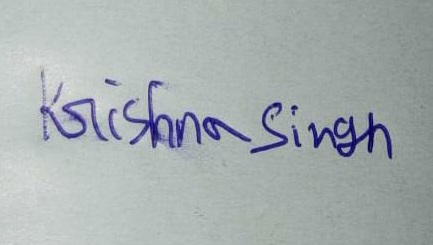 Krishna Singh